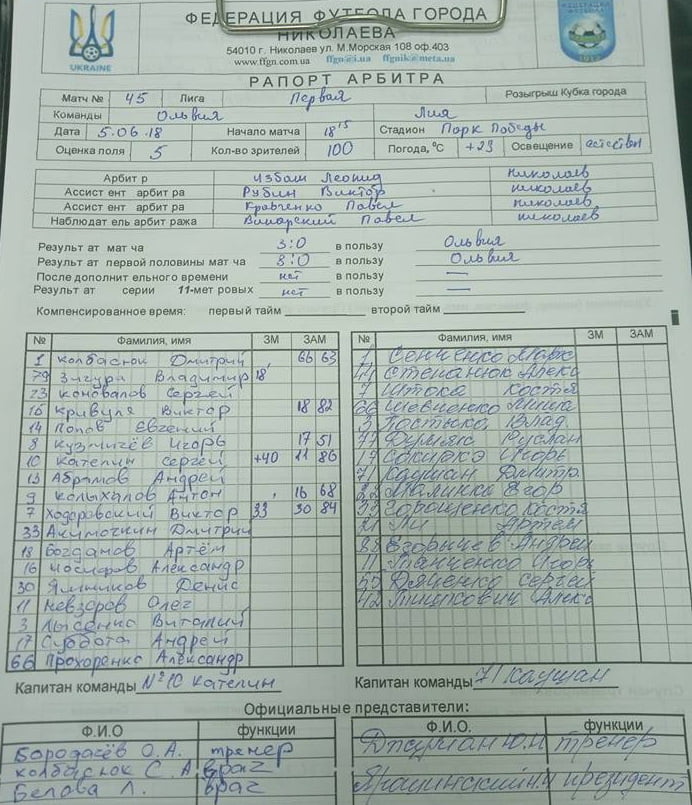 ФЕДЕРАЦИЯ ФУТБОЛА ГОРОДА
НИКОЛАЕВА
54010 г. Николаев ул. М.Морская 108 оф.403
www.ffgn.com.ua ffgn@i.ua ffgnik@meta.ua
UKRAINE
РАПОРТ АРБИТРА
Матч № 45 Лига Первая Розыгрыш Кубка города
Команды Ольвия Лия
Дата 5.06.18 Начало матча 18 15 Стадион Парк Победы
Оценка поля 5 Кол-во зрителей 100 Погода, °С +23 Освещение
Арбитр Избаш Леонид Николаев
Ассистент арбитра Рубин Виктор Николаев
Ассистент арбитра Кравченко Павел Николаев
Наблюдатель арбитража Винарский Павел Николаев
Результат матча 3:0 в пользу Ольвия
Результат первой половины матча 3:0 в пользу Ольвия
После дополнительного времени нет в пользу —
Результат серии 11-метровых нет в пользу —
Компенсированное время: первый тайм второй тайм
№ Фамилия, имя ЗМ ЗАМ № Фамилия, имя ЗМ ЗАМ
1 Колбасюк Дмитрий 66 63
79 Зигура Владимир 18
23 Коновалов Сергей
15 Кривуля Виктор 18 82
14 Попов Евгений
8 Кузмичёв Игорь 17 51
10 Кателин Сергей +40 11 86
13 Абрамов Андрей
9 Колыхалов Антон 16 68
7 Ходоровский Виктор 33 30 84
33 Акимочкин Дмитрий
18 Богданов Артём
16 Иосифов Александр
30 Денис
11 Невзоров Олег
3 Лысенко Виталий
17 Суббота Андрей
66 Прохоренко Александр
1 Сенченко Марк
44 Степанюк Алекс
7 Штока Костя
66 Шевченко Миша
3 Костычо Влад
Руслан
Игорь
71 Каушан Дмитр
Малинко Егор
Горощенко Костя
Ли Артём
88 Егорычев Андрей
11 Танченко Игорь
50 Дяченко Сергей
42 Алекс
Капитан команды №10 Кателин
Капитан команды 71 Каушан
Официальные представители:
Ф.И.О функции Ф.И.О. функции
Бородаев О.А. тренер
Колбасюк С.А. врач
Белова Л. врач
тренер
президент